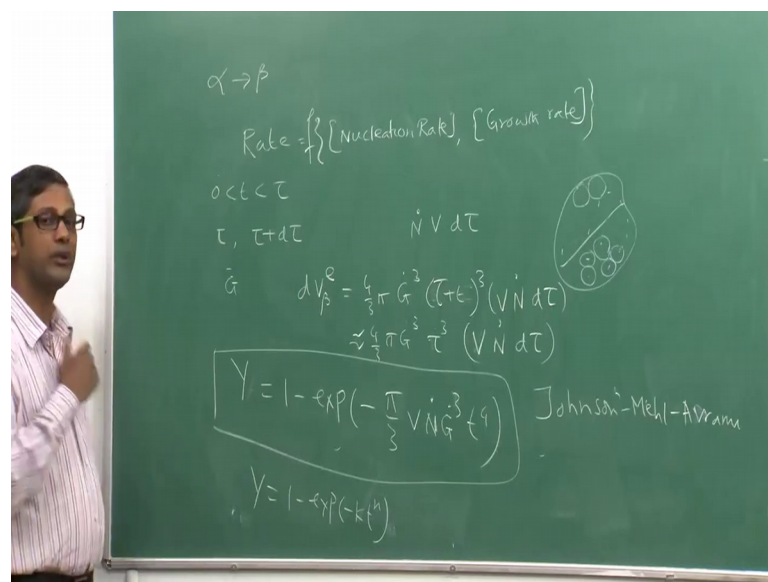 α → β
Rate = f{[Nucleation Rate], [Growth rate]}
0 < t < τ
τ, τ+dτ    Ṅ V dτ
Ġ    dV_β^e = 4/3 π Ġ^3 (τ+t)^3 (V Ṅ dτ)
≈ 4/3 π Ġ^3 τ^3 (V Ṅ dτ)
Y = 1 - exp(- π/3 V Ṅ Ġ^3 t^4)    Johnson-Mehl-Avrami
Y = 1 - exp(-kt^n)